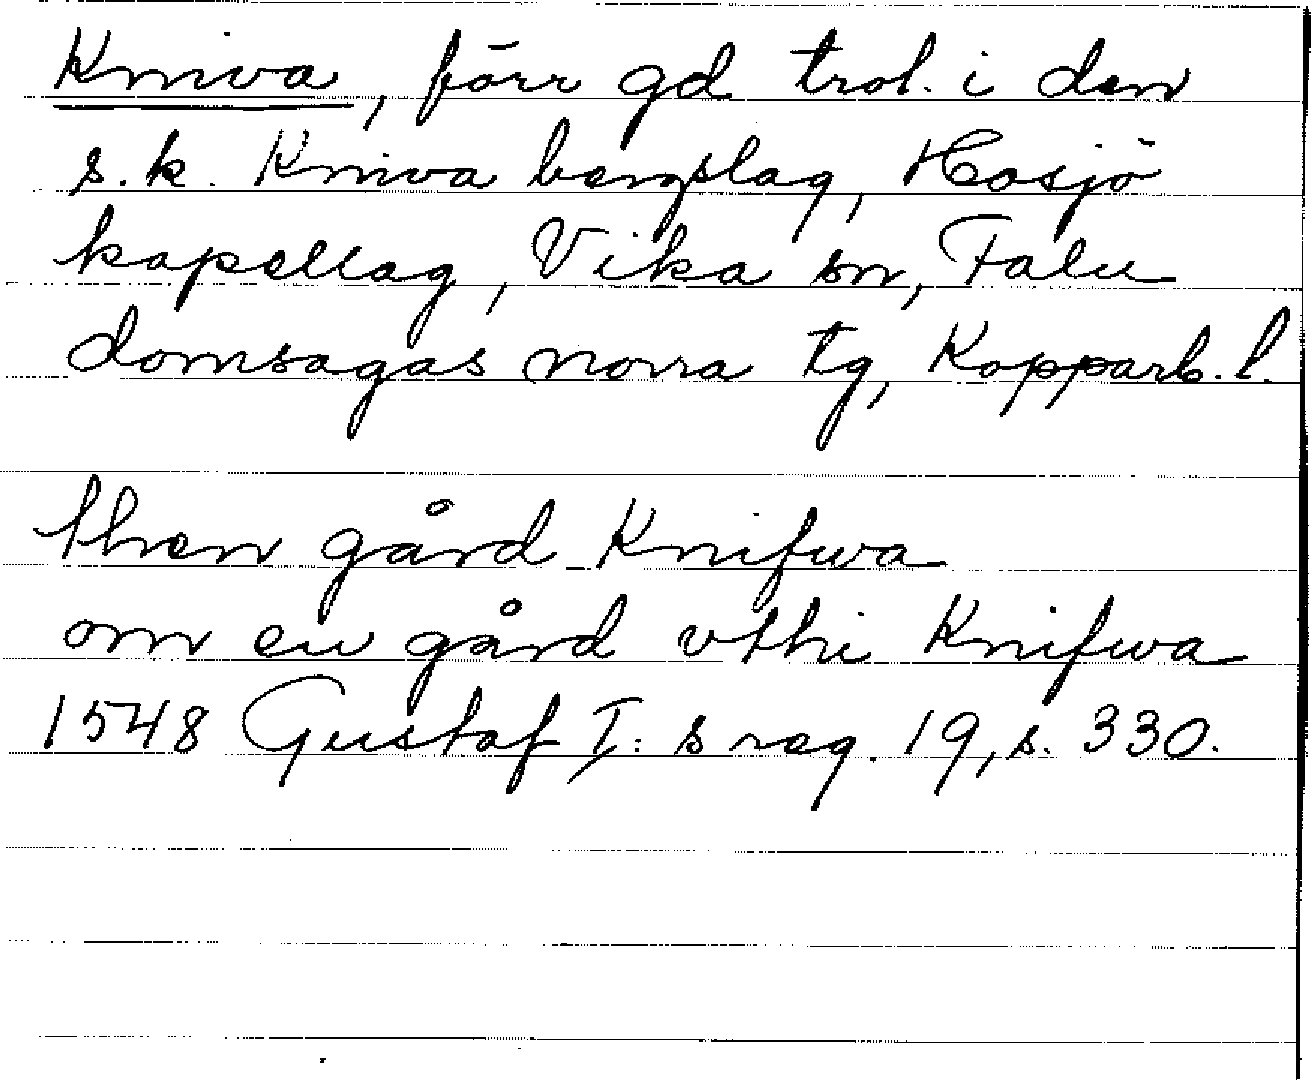 Kniva, förr gd trol. i den
s.k. Kniva bergslag, Hosjö
kapellag, Vika sn, Falu
domsagas norra tg, Kopparb. l.
then gård Knifwa
om en gård vthi Knifwa
1548 Gustaf I:s reg. 19, s. 330.